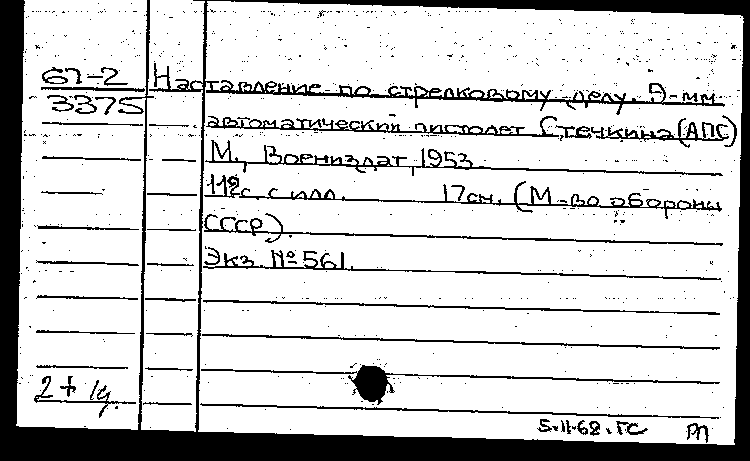 67-2 Наставление по стрелковому делу. 9-мм
3375
автоматический пистолет Стечкина (АПС)
М., Воениздат, 1953.
112с. с илл. 17см. (М-во обороны
СССР).
Экз. № 561.
2 +
5.11.68. ГС РП